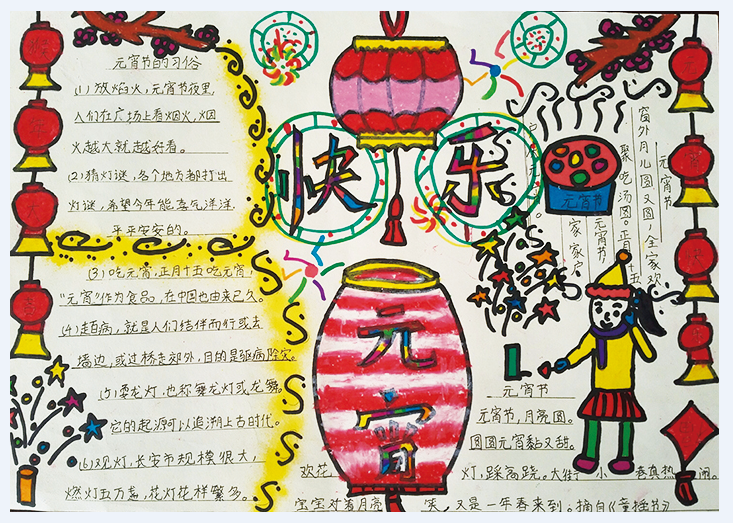 元宵节的习俗
(1)放焰火，元宵节夜里，
人们在广场上看烟火，烟
火越大就越好看。
(2)猜灯谜，各个地方都打出
灯谜，希望今年能喜气洋洋，
平平安安的。
(3)吃元宵，正月十五吃元宵
“元宵”作为食品，在中国也由来已久。
(4)走百病，就是人们结伴而行或去
墙边，或过桥走郊外，目的是驱病除灾。
(5)耍龙灯，也称舞龙灯或龙舞。
它的起源可以追溯上古时代。
(6)观灯，长安市规模很大，
燃灯五万盏，花灯花样繁多。
快乐
元宵
元宵节
元宵节
窗外月儿圆又圆，全家欢
聚吃汤圆。正月十五
元宵节
家家户
元宵节
元宵节，月亮圆。
圆圆元宵黏又甜。
欢花
灯，踩高跷。大街小巷真热闹。
宝宝对着月亮笑，又是一年春来到。摘自《童谣书》